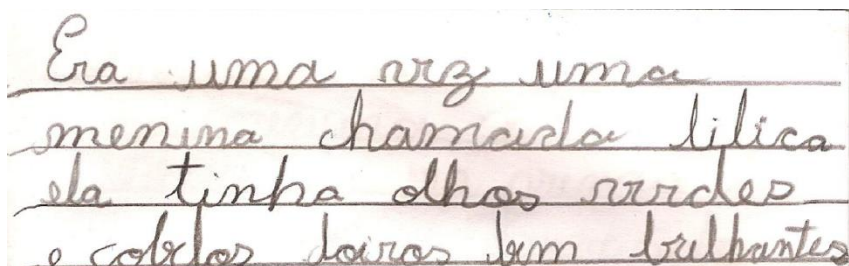 Era uma vez uma
menina chamada lilica
ela tinha olhos verdes
e cobelos loiros bem brilhantes